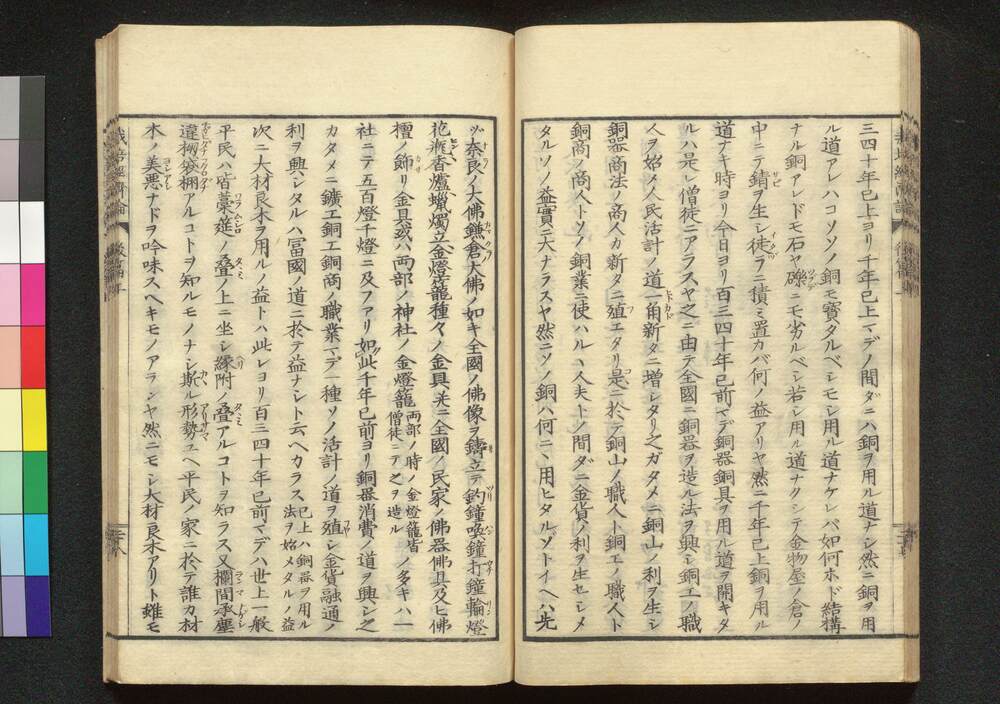 三四十年已上ヨリ千年已上マデノ間ダニハ銅ヲ用ル道ナシ然ニ銅ヲ用
ル道アレハコソソノ銅モ寳タルベシモシ用ル道ナケレバ如何ホド結構
ナル銅アレドモ石ヤ礫ニモ劣ルベシ若シ用ル道ナクシテ金物屋ノ倉ノ
中ニテ錆ヲ生シ徒ラニ積ミ置カバ何ノ益アリヤ然ニ千年已上銅ヲ用ル
道ナキ時ヨリ今日ヨリ百三四十年已前マデ銅器銅具ヲ用ル道ヲ開キタ
ルハ是レ僧徒ニアラスヤ之ニ由テ全國ニ銅器ヲ造ル法ヲ興シ銅工ノ職
人ヲ始メ人民活計ノ道一角新タニ増シタリ之ガタメニ銅山ノ利ヲ生シ
銅器商法ノ商人カ新タニ殖エタリ是ニ於テ銅山ノ職人ト銅工ノ職人ト
銅商ノ商人トソノ銅業ニ使ハルヽ人夫トノ間ダニ金貨ノ利ヲ生セシメ
タルソノ益實ニ大ナラスヤ然ニソノ銅ハ何ニヽ用ヒタルゾトイヘハ先
ヅ奈良ノ大佛鎌倉大佛ノ如キ全國ノ佛像ヲ鑄立テ釣鐘喚鐘打鐘輪燈
花瓶香爐蠟燭立金燈籠種々ノ金具並ニ全國ノ民家ノ佛器佛具及ヒ佛
檀ノ飾リ金具或ハ両部ノ神社ノ金燈籠両部ノ時ノ金燈籠皆僧徒ニテ之ヲ造ルノ多キハ一
社ニテ五百燈千燈ニ及フアリ如此千年已前ヨリ銅器消費ノ道ヲ興シ之
カタメニ鑛工銅工銅商ノ職業マデ一種ソノ活計ノ道ヲ殖シ金貨融通ノ
利ヲ興シタルハ冨國ノ道ニ於テ益ナシト云ヘカラス已上ハ銅器ヲ用ル法ヲ始メタルノ益
次ニ大材良木ヲ用ルノ益トハ此レヨリ百三四十年已前マデハ世上一般
平民ハ皆藁莚ノ疊ノ上ニ坐シ縁附ノ疊アルコトヲ知ラス又欄間承塵
違棚袋棚アルコトヲ知ルモノナシ斯ル形勢ユヘ平民ノ家ニ於テ誰カ材
木ノ美悪ナドヲ吟味スヘキモノアランヤ然ニモシ大材良木アリト雖モ